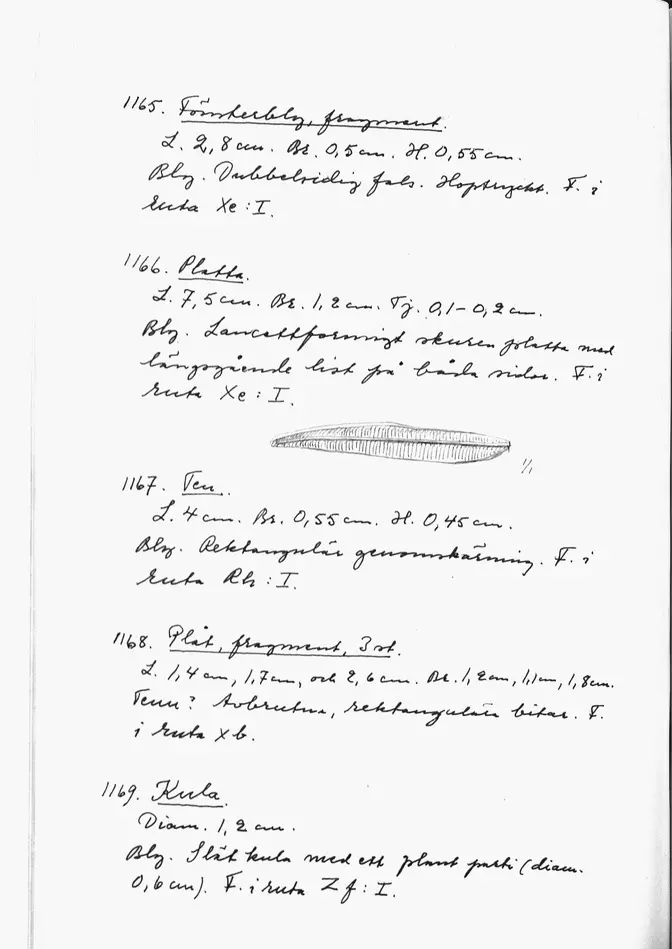 1165. Fönsterbly, fragment.
L. 2,8 cm. Br. 0,5 cm. H. 0,55 cm.
Bly. Dubbelsidig fals. Hoptryckt. F. i
ruta Xe : I.
1166. Platta.
L. 7,5 cm. Br. 1,2 cm. Tj. 0,1 – 0,2 cm.
Bly. Lancettformigt skuren platta med
längsgående list på båda sidor. F. i
ruta Xe : I.
1/1
1167. Ten.
L. 4 cm. Br. 0,55 cm. H. 0,45 cm.
Bly. Rektangulär genomskärning. F. i
ruta Rh : I.
1168. Plåt, fragment, 3 st.
L. 1,4 cm, 1,7 cm, och 2,6 cm. Br. 1,2 cm, 1,1 cm, 1,8 cm.
Tenn? Avbrutna, rektangulära bitar. F.
i ruta Xb.
1169. Kula.
Diam. 1,2 cm.
Bly. Slät kula med ett plant parti (diam.
0,6 cm). F. i ruta Zf : I.